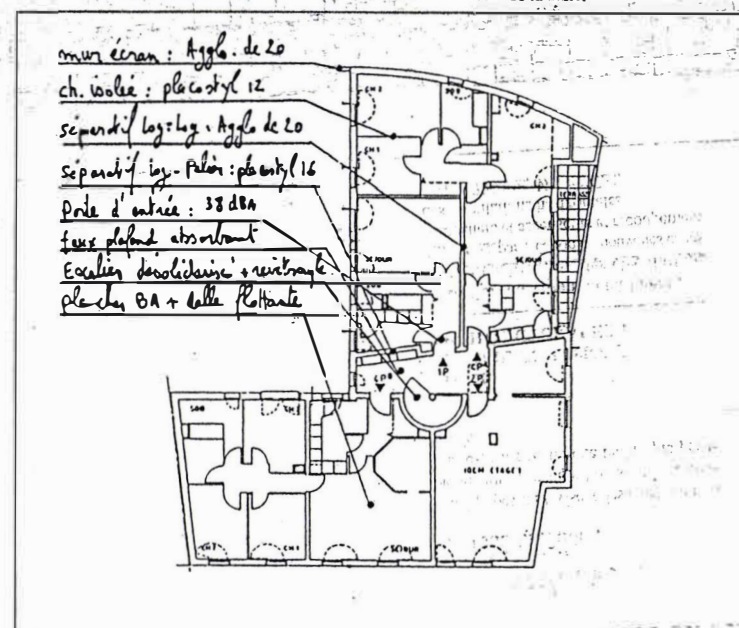 mur écran : Agglo. de 20
ch. isolée : placostyl 12
séparatif Log=Log. Agglo de 20
séparatif Log-Palier : placostyl 16
Porte d'entrée : 38 dBA
faux plafond absorbant
Escalier désolidarisé + revêt souple
plancher BA + dalle flottante
CH 2
CH 1
CH 2
SEJOUR
SEJOUR
1P
SDB
CH 2
CH 1
SEJOUR
IDEM ETAGE 1